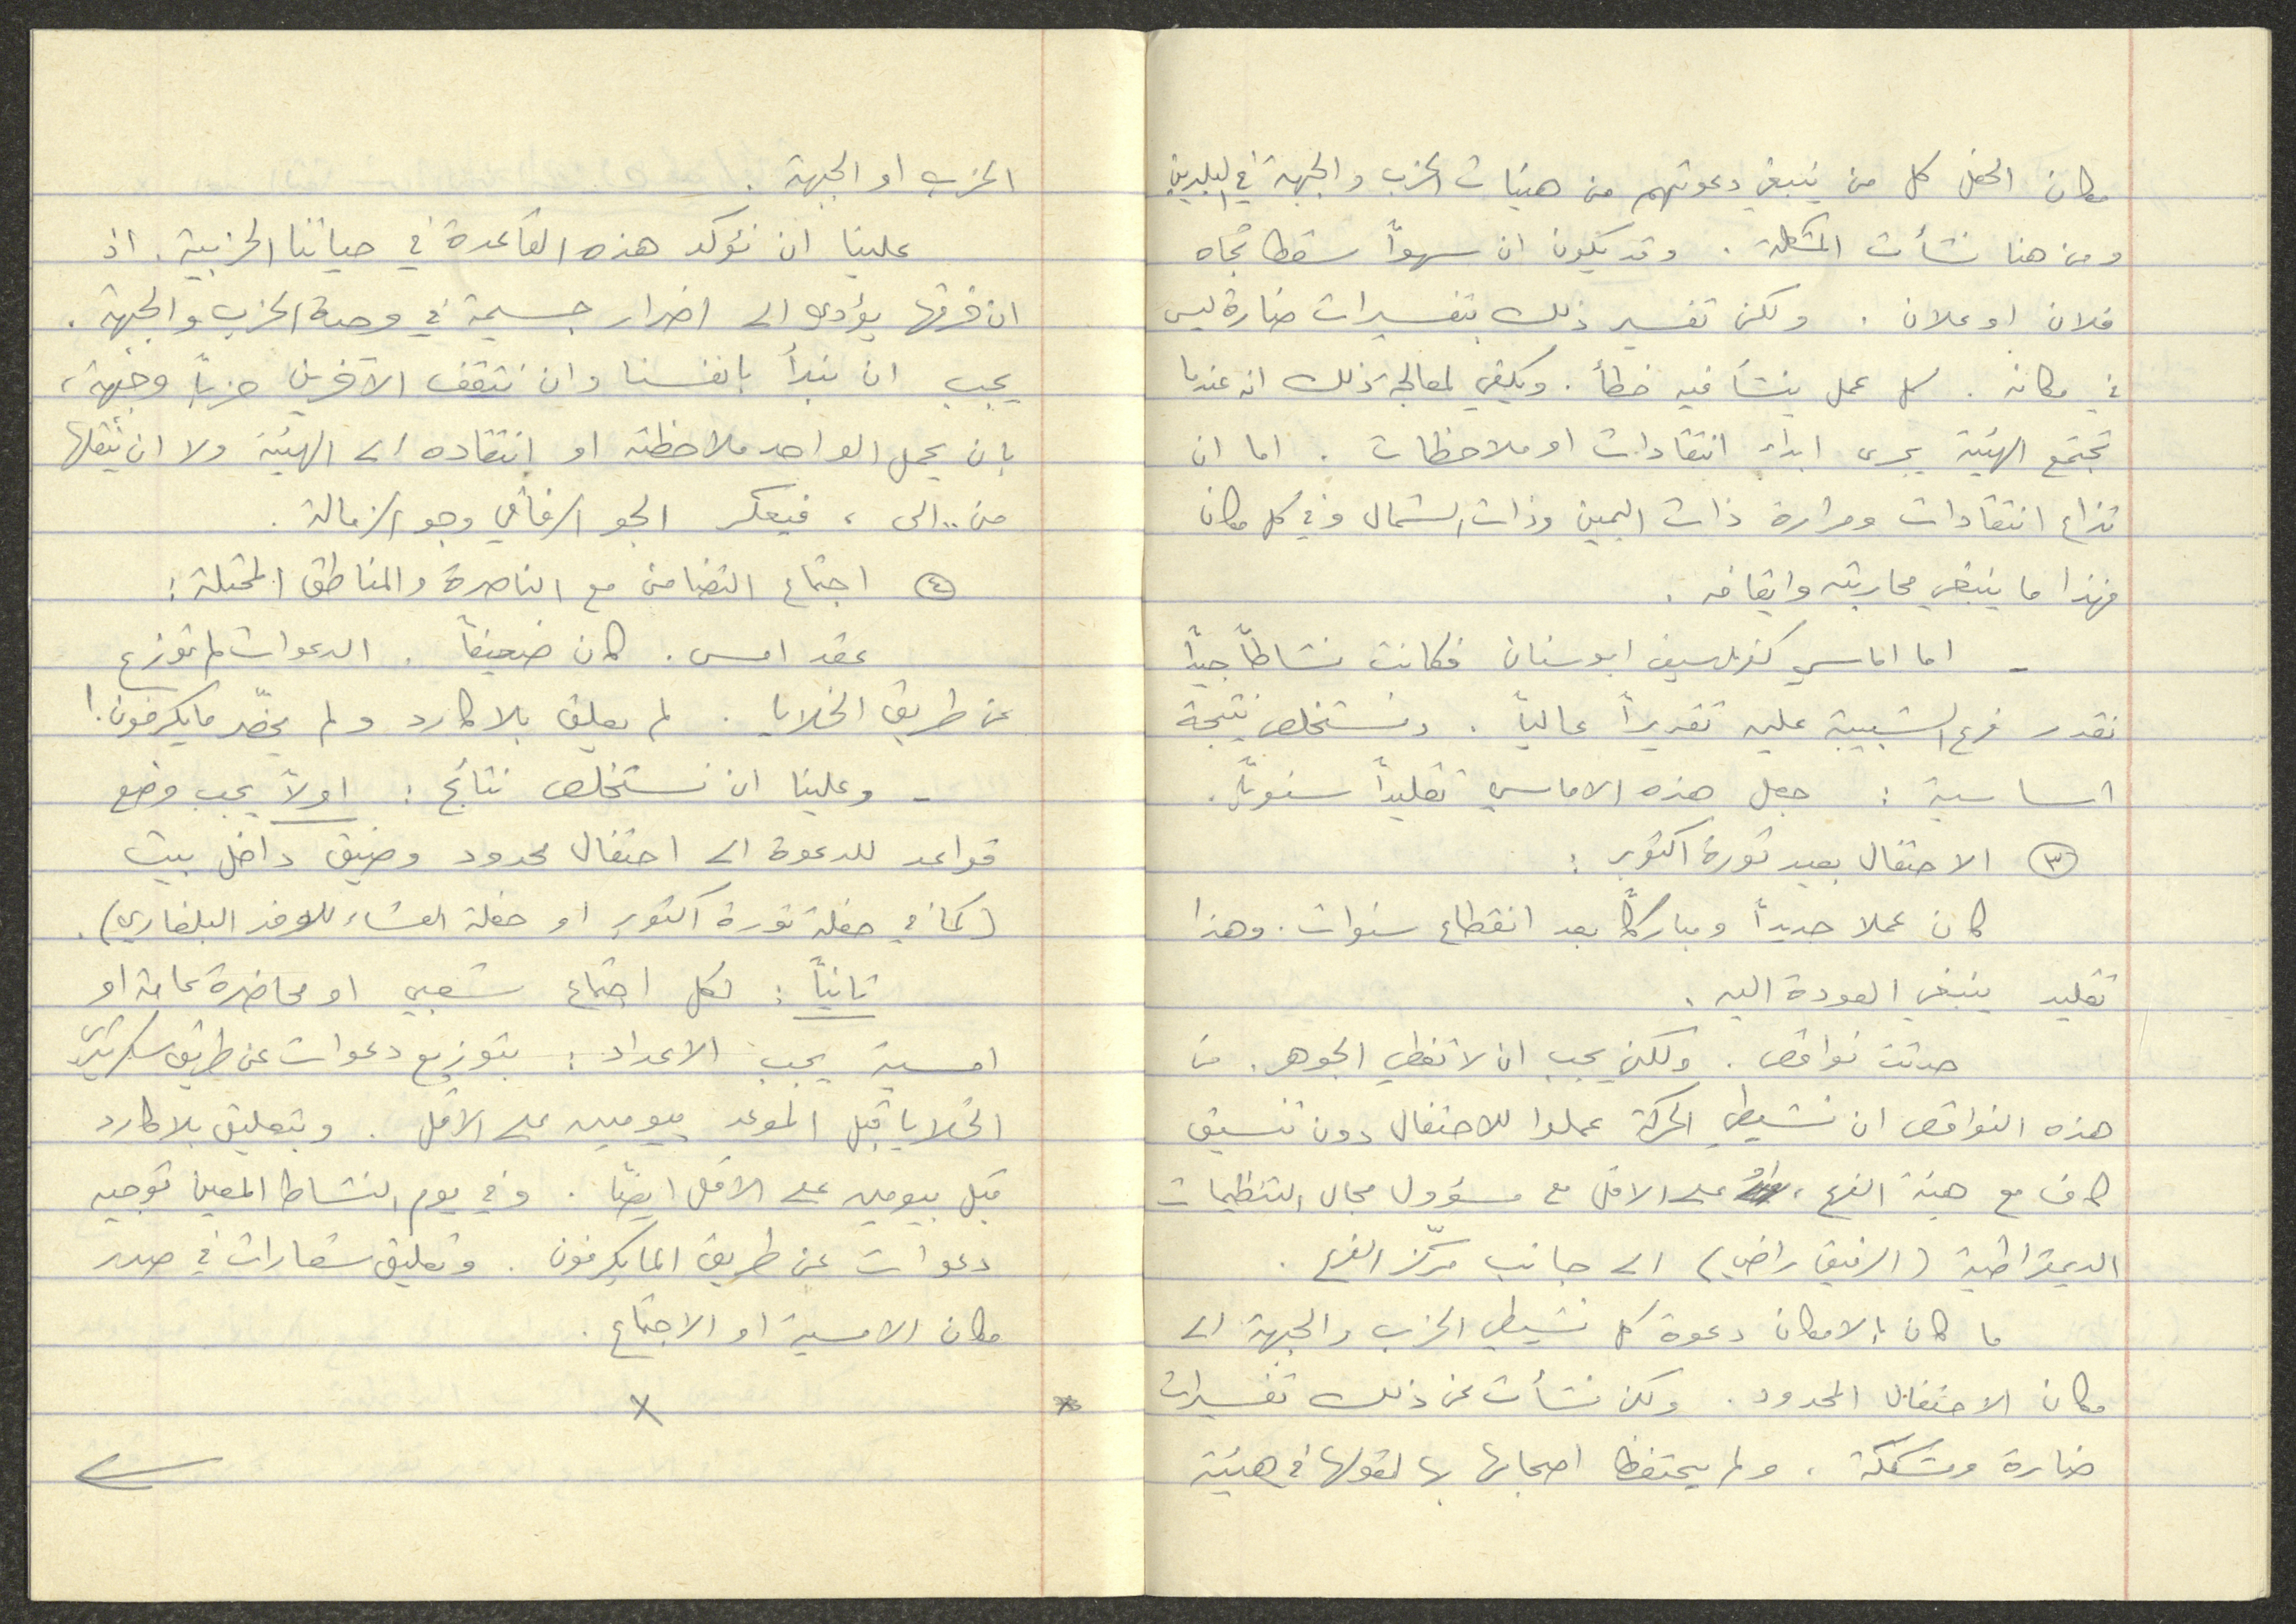 مكان الحفل كل من ينبغي دعوتهم من هيئات الحزب والجبهة في البلدين
ومن هنا نشأت المشكلة . وقد يكون ان سهواً سقط تجاه
فلان او علان . ولكن تفسير ذلك بتفسيرات ضارة ليس
في مكانه . كل عمل ينشأ فيه خطأ . ويكفي لمعالجة ذلك انه عندما
تجتمع الهيئة يجرى ابداء انتقادات او ملاحظات . اما ان
تذاع انتقادات ومرارة ذات اليمين وذات الشمال وفي كل مكان
فهذا ما ينبغي محاربته وايقافه .
- اما اماسي كفرياسيف ابو سنان فكانت نشاطاً جيداً
نقدر فرع الشبيبة عليه تقديراً عالياً . ونستخلص نتيجة
اساسية : جعل هذه الاماسي تقليداً سنوياً .
(٣) الاحتفال بعيد ثورة اكتوبر :
كان عملا جديداً ومباركاً بعد انقطاع سنوات . وهذا
تقليد ينبغي العودة اليه .
حدثت نواقص . ولكن يجب ان لا تغطي الجوهر . من
هذه النواقص ان نشيطي الحركة عملوا للاحتفال دون تنسيق
كاف مع هيئة الفرع ، على الاقل مع مسؤول مجال التنظيمات
الديمقراطية (الرفيق راضي) الى جانب مركّز الفرع .
ما كان بالامكان دعوة كل نشيطي الحزب والجبهة الى
مكان الاحتفال المحدود . ولكن نشأت عن ذلك تفسيرات
ضارة ومشككة ، ولم يحتفظ اصحابها بها لقولها في هيئة
الحزب او الجبهة .
علينا ان نؤكد هذه القاعدة في حياتنا الحزبية . اذ
ان خرقها يؤدي الى اضرار جسيمة في وحدة الحزب والجبهة .
يجب ان نبدأ بانفسنا وان نثقف الآخرين حزباً وجبهة ،
بان يحمل الواحد ملاحظته او انتقاده الى الهيئة ولا ان ينقلها
من .. الى ، فيعكر الجو الرفاقي وجو الزمالة .
(٤) اجتماع التضامن مع الناصرة والمناطق المحتلة :
عقد امس . كان ضعيفاً . الدعوات لم توزع
عن طريق الخلايا . لم يعلق بلاكارد ولم يحضّر مايكرفون !
- وعلينا ان نستخلص نتائج : اولاً يجب وضع
قواعد للدعوة الى احتفال محدود وضيق داخل بيت
(كما في حفلة ثورة اكتوبر او حفلة العشاء للوفد البلغاري) .
ثانياً : لكل اجتماع شعبي او محاضرة عامة او
امسية يجب الاعداد : بتوزيع دعوات عن طريق سكرتيري
الخلايا قبل الموعد بيومين على الاقل . وبتعليق بلاكارد
قبل بيومين على الاقل ايضاً . وفي يوم النشاط المعين توجيه
دعوات عن طريق المايكرفون . وتعليق شعارات في صدر
مكان الامسية او الاجتماع .
x